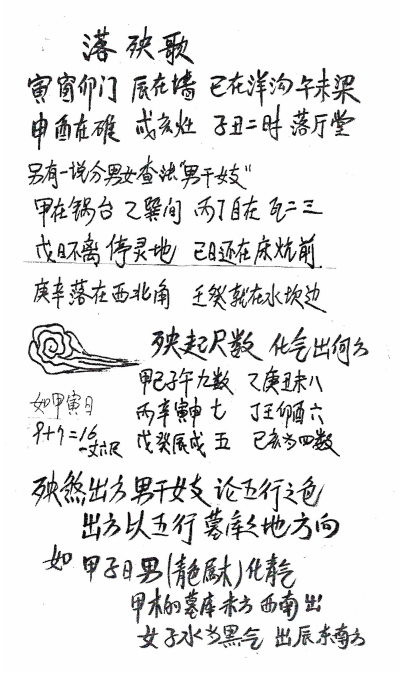 落殃歌
寅窗卯门 辰在墙 巳在洋沟午未梁
申酉在碓 戌亥灶 子丑二时落厅堂
另有一说分男女查法"男干女支"
甲在锅台 乙巽间 丙丁自在瓦二三
戊日不离停灵地 己日还在床炕前
庚辛落在西北角 壬癸就在水坎边
殃起尺数 化气出何方
甲己子午九数 乙庚丑未八
丙辛寅申七 丁壬卯酉六
戊癸辰戌五 己亥当四数
如甲寅日
9+7=16
一丈六尺
殃煞出方男干女支论五行之色
出方以五行墓库之地方向
如甲子日男(青色属木)化青气
甲木的墓库未方西南出
女子水当黑气 出辰东南方